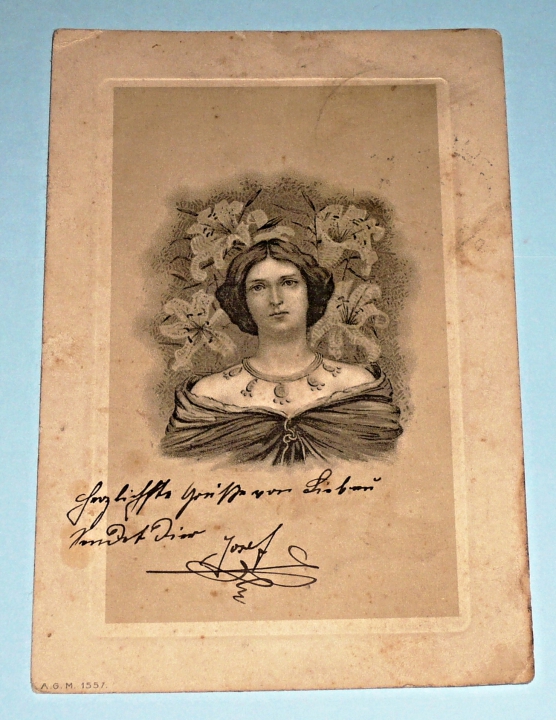 Herzlichste Grüsse von Liebau
Sendet Dier Josef
A.G.M. 1557.